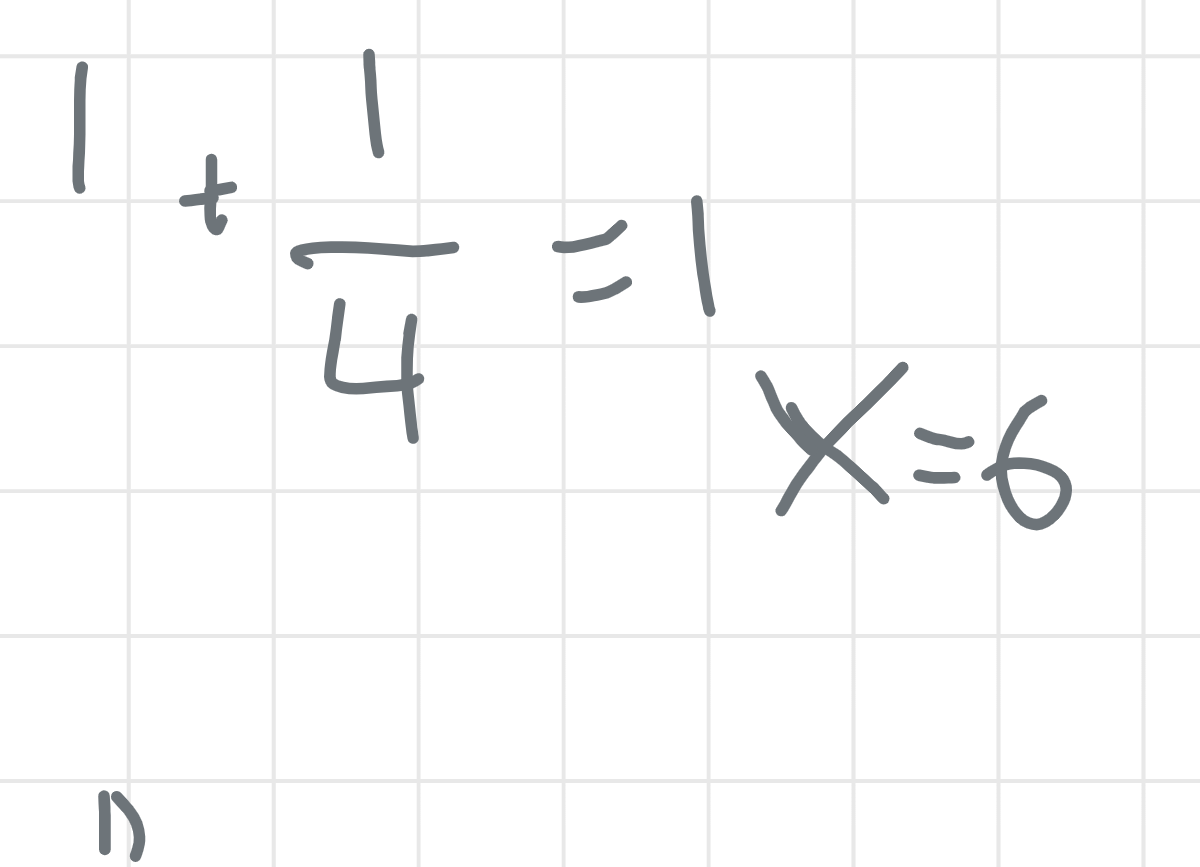 1 + 1/4 = 1
x = 6
n